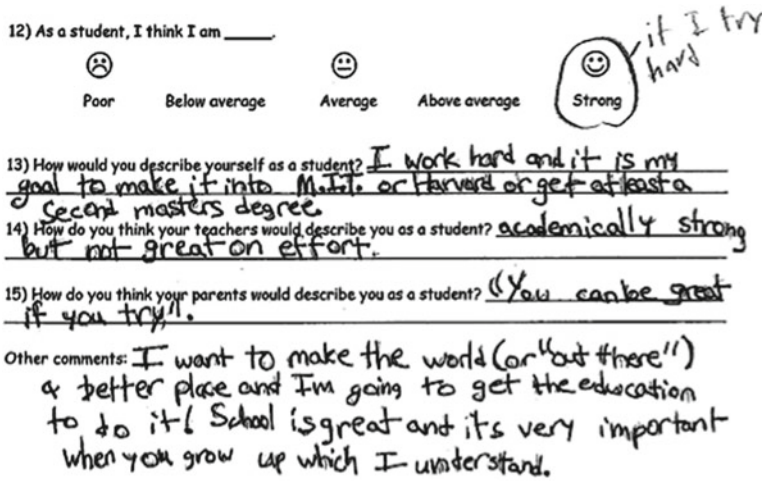 12) As a student, I think I am _____.
if I try
hard
Poor Below average Average Above average Strong
13) How would you describe yourself as a student? I work hard and it is my
goal to make it into M.I.T. or Harvard or get at least a
second masters degree.
14) How do you think your teachers would describe you as a student? academically strong
but not great on effort.
15) How do you think your parents would describe you as a student? "You can be great
if you try,".
Other comments: I want to make the world (or "out there")
a better place and I'm going to get the education
to do it! School is great and it's very important
when you grow up which I understand.